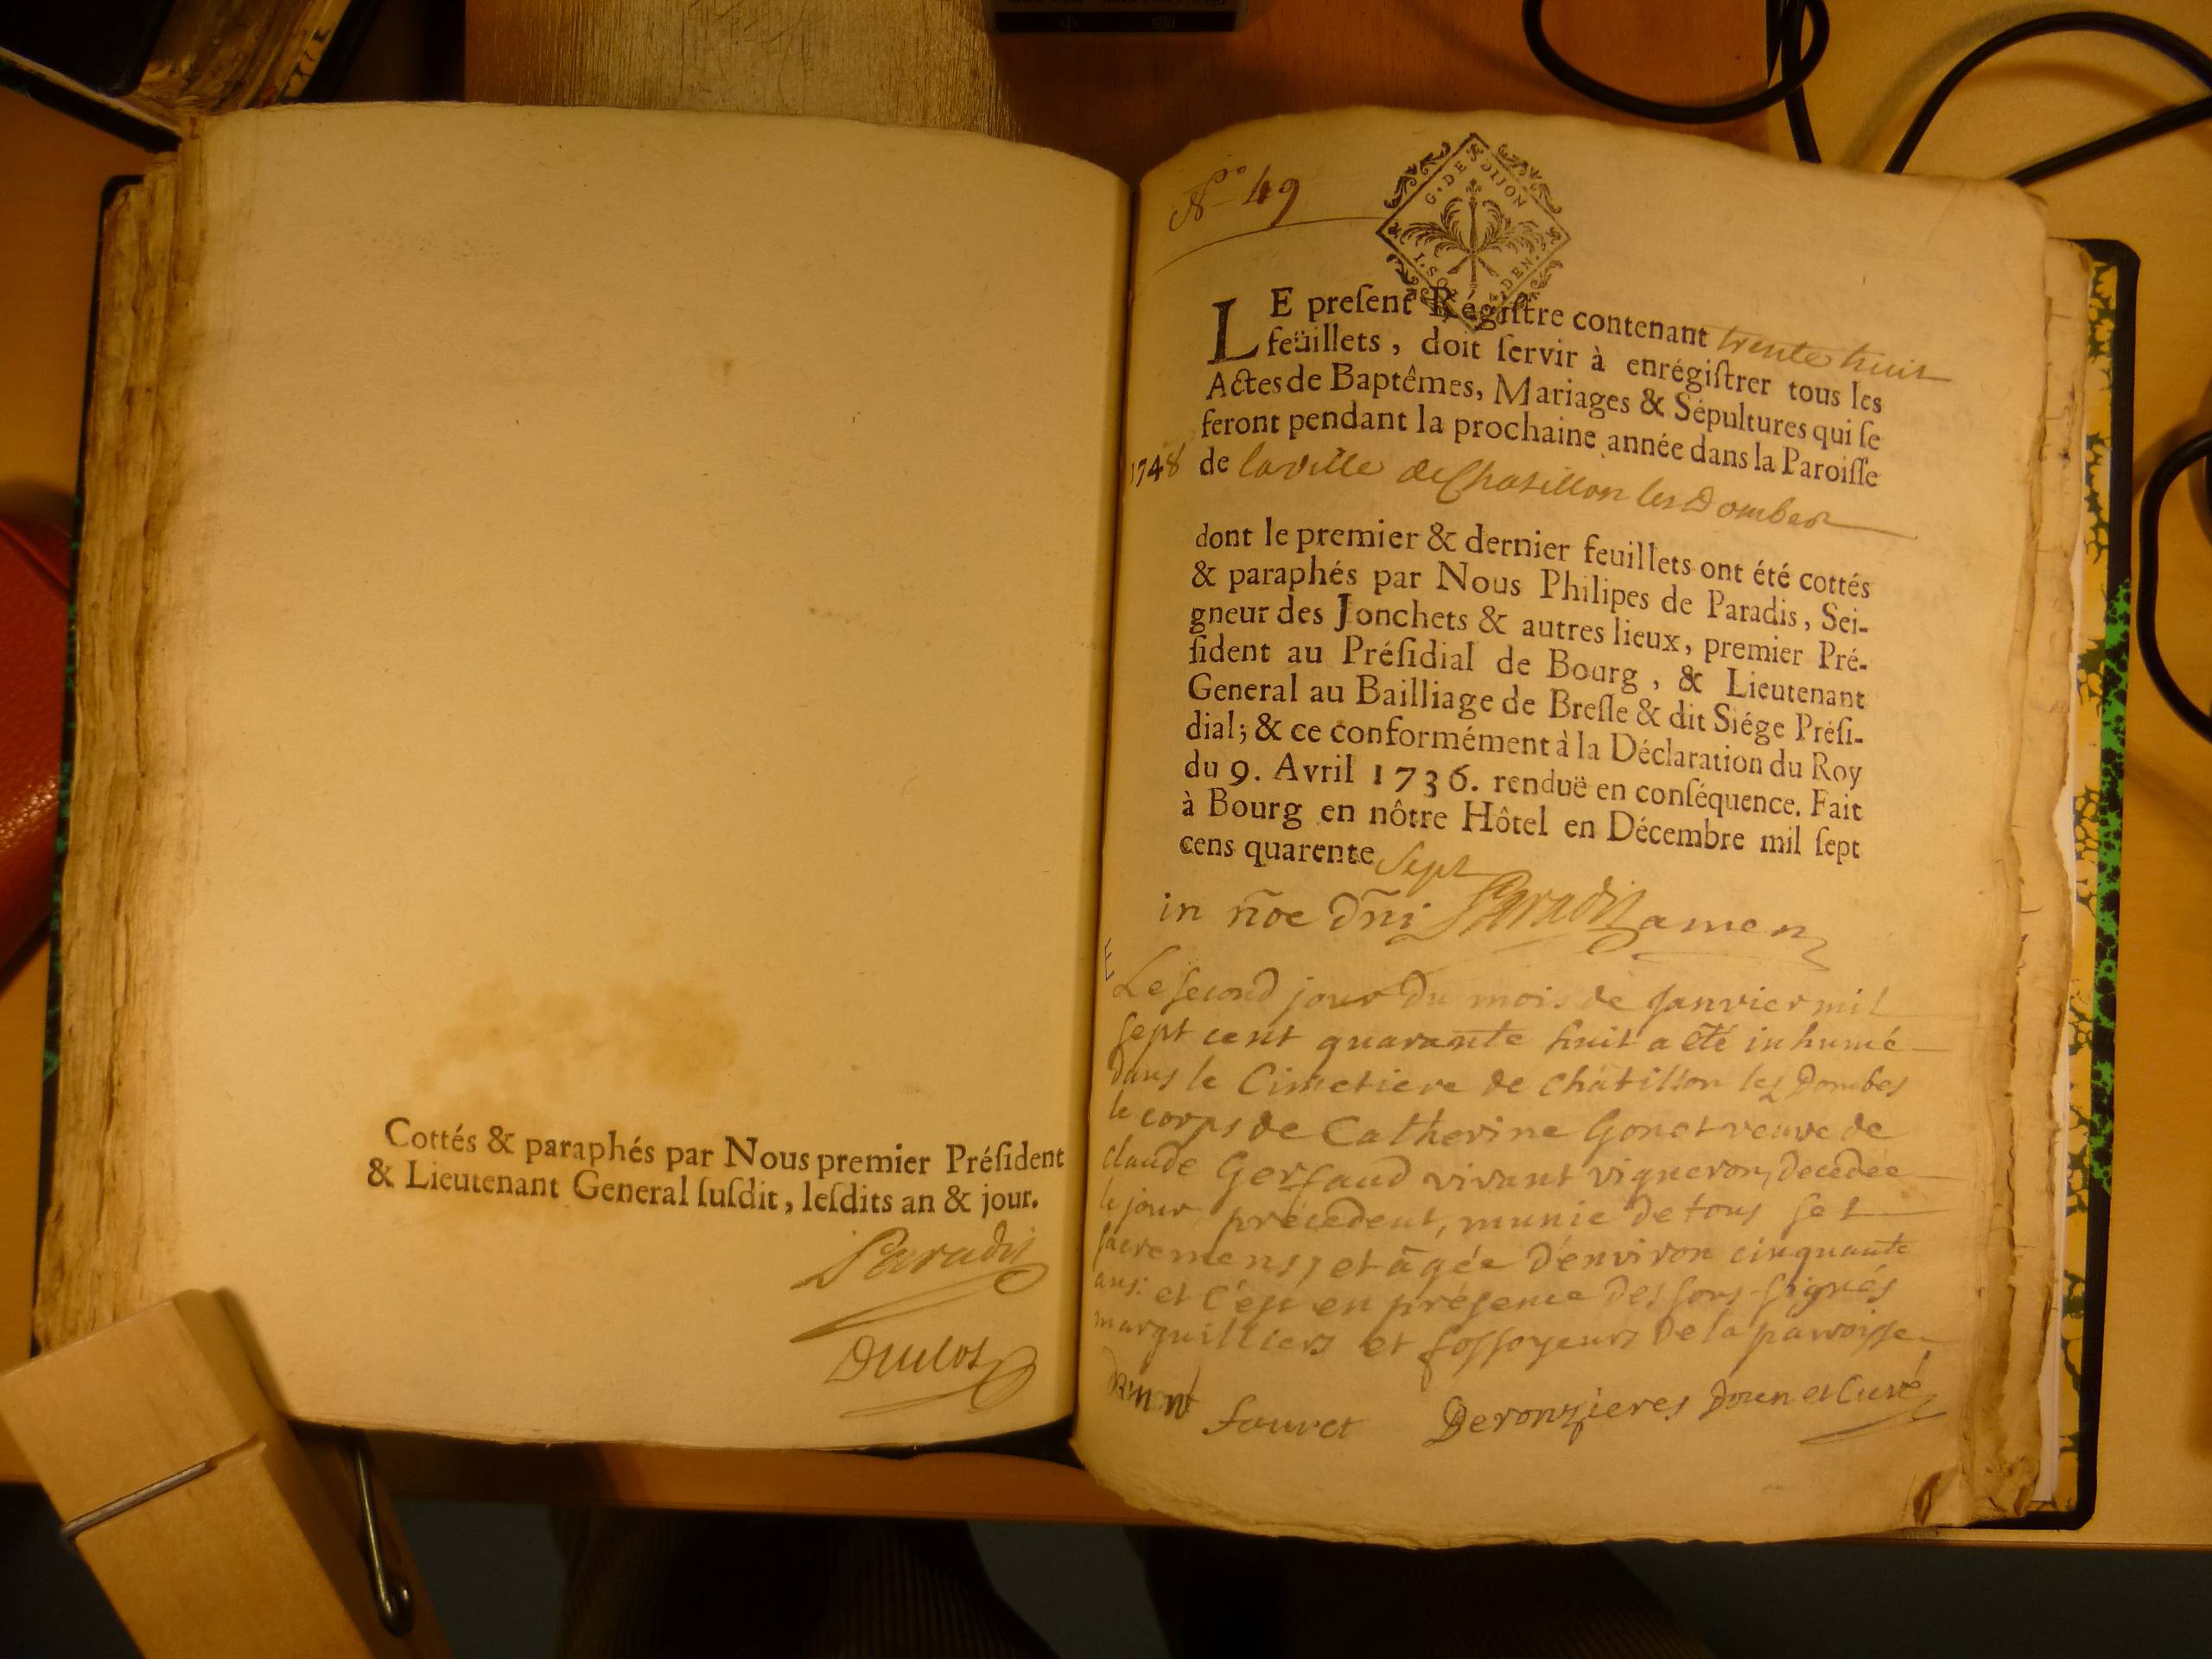 Cottés & paraphés par Nous premier Préſident
& Lieutenant General ſuſdit, leſdits an & jour.
Paradis
Duclos
No 49
G. DE DIJON
LE preſent Régiſtre contenant trente huit
feüillets, doit ſervir à enrégiſtrer tous les
Actes de Baptêmes, Mariages & Sépultures qui ſe
feront pendant la prochaine année dans la Paroiſſe
1748 de la ville de Chatillon les Dombes
dont le premier & dernier feuillets ont été cottés
& paraphés par Nous Philipes de Paradis, Sei-
gneur des Jonchets & autres lieux, premier Pré-
ſident au Préſidial de Bourg, & Lieutenant
General au Bailliage de Breſſe & dit Siége Préſi-
dial; & ce conformément à la Déclaration du Roy
du 9. Avril 1736. renduë en conſéquence. Fait
à Bourg en nôtre Hôtel en Décembre mil ſept
cens quarente sept
in nōe dñi Paradis amen
Le second jour du mois de Janvier mil
sept cent quarante huit a été inhumé
dans le Cimetiere de châtillon les Dombes
le corps de Catherine Gonet veuve de
claude Gerfaud vivant vigneron, decedée
le jour précedent, munie de tous ses
sacremens, et âgée d'environ cinquante
ans: et c'est en présence des sous-signés
marguilliers et fossoyeurs de la parroisse
fauret Deronzieres Doien et Curé